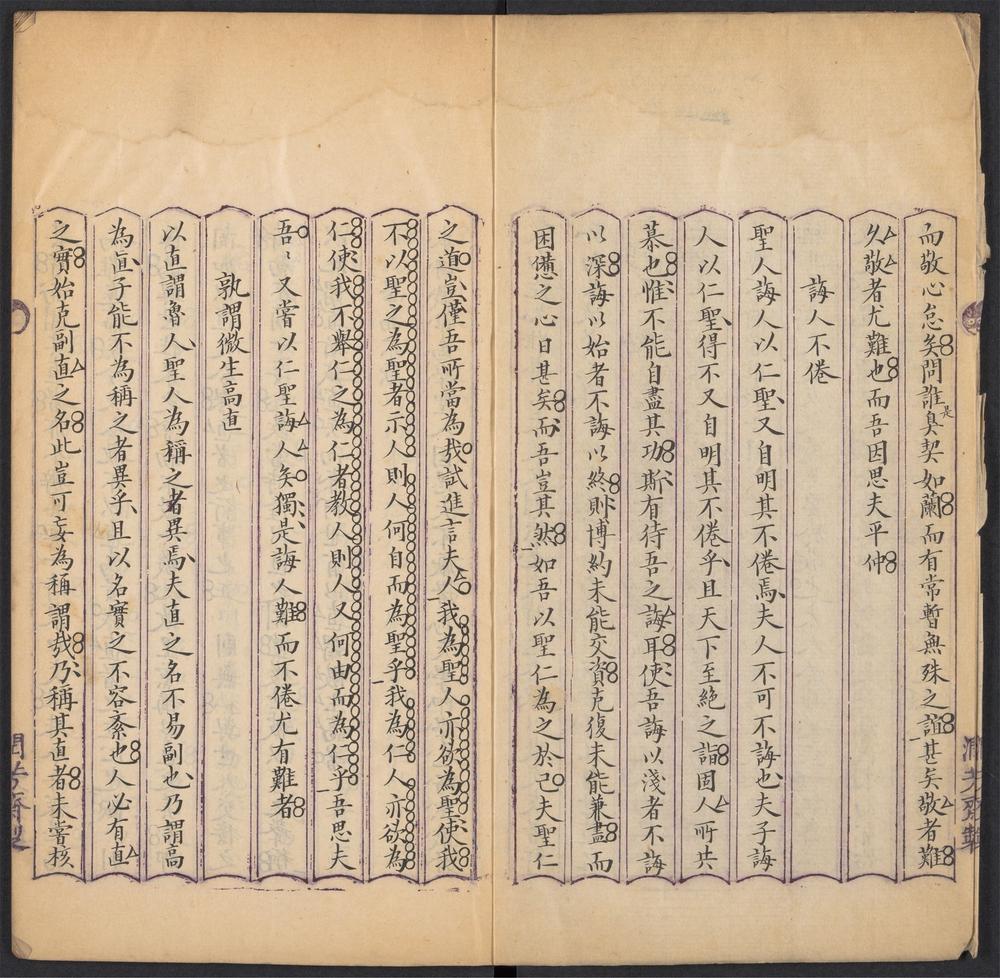 而敬心怠矣問誰是臭契如蘭而有常暫無殊之誼甚矣敬者難
久敬者尤難也而吾因思夫平仲
誨人不倦
聖人誨人以仁聖又自明其不倦焉夫人不可不誨也夫子誨
人以仁聖得不又自明其不倦乎且天下至絶之詣固人所共
慕也惟不能自盡其功斯有待吾之誨耳使吾誨以淺者不誨
以深誨以始者不誨以終則博約未能交資克復未能兼盡而
困憊之心日甚矣而吾豈其然如吾以聖仁為之於己夫聖仁
之道豈僅吾所當為我試進言夫人我為聖人亦欲為聖使我
不以聖之為聖者示人則人何自而為聖乎我為仁人亦欲為
仁使我不舉仁之為仁者教人則人又何由而為仁乎吾思夫
吾〻又嘗以仁聖誨人矣獨是誨人難而不倦尤有難者
孰謂微生高直
以直謂魯人聖人為稱之者異焉夫直之名不易副也乃謂高
為直子能不為稱之者異乎且以名實之不容紊也人必有直
之實始克副直之名此豈可妄為稱謂哉乃稱其直者未嘗核